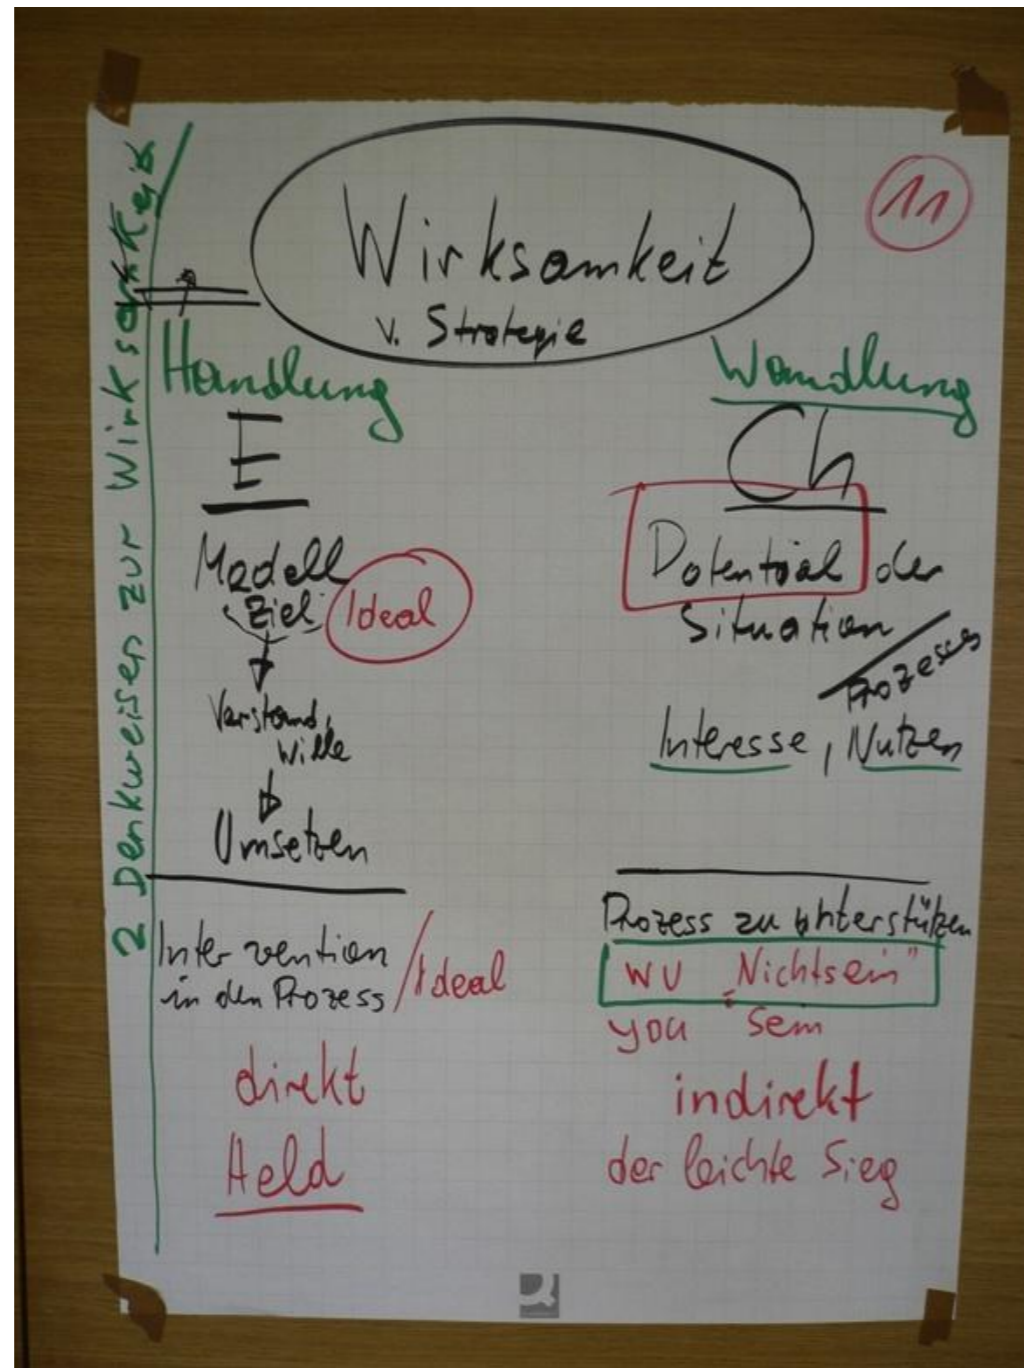 2 Denkweisen zur Wirksamkeit
11
Wirksamkeit
v. Strategie
Handlung
E
Modell
Ziel Ideal
Verstand,
Wille
Umsetzen
Intervention
in den Prozess / Ideal
direkt
Held
Wandlung
Ch
Potential der
Situation
Prozesses
Interesse, Nutzen
Prozess zu unterstützen
WU „Nichtsein"
you = Sein
indirekt
der leichte Sieg